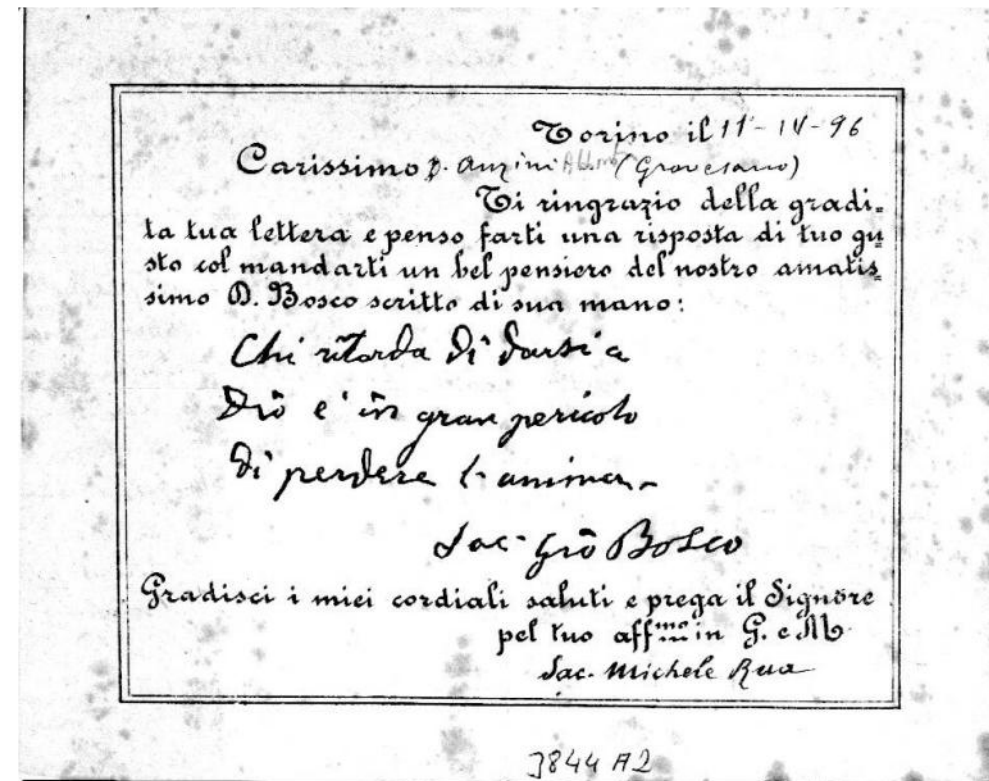 Torino il 11-IV-96
Carissimo D. Anzini Abb. (Gravesano)
Ti ringrazio della gradi=
ta tua lettera e penso farti una risposta di tuo gu=
sto col mandarti un bel pensiero del nostro amatis=
simo D. Bosco scritto di sua mano:
Chi ritarda di darsi a
Dio e' in gran pericolo
di perdere l'anima.
Sac. Gio Bosco
Gradisci i miei cordiali saluti e prega il Signore
pel tuo affmo in G. e M.
Sac. Michele Rua
3844 A2